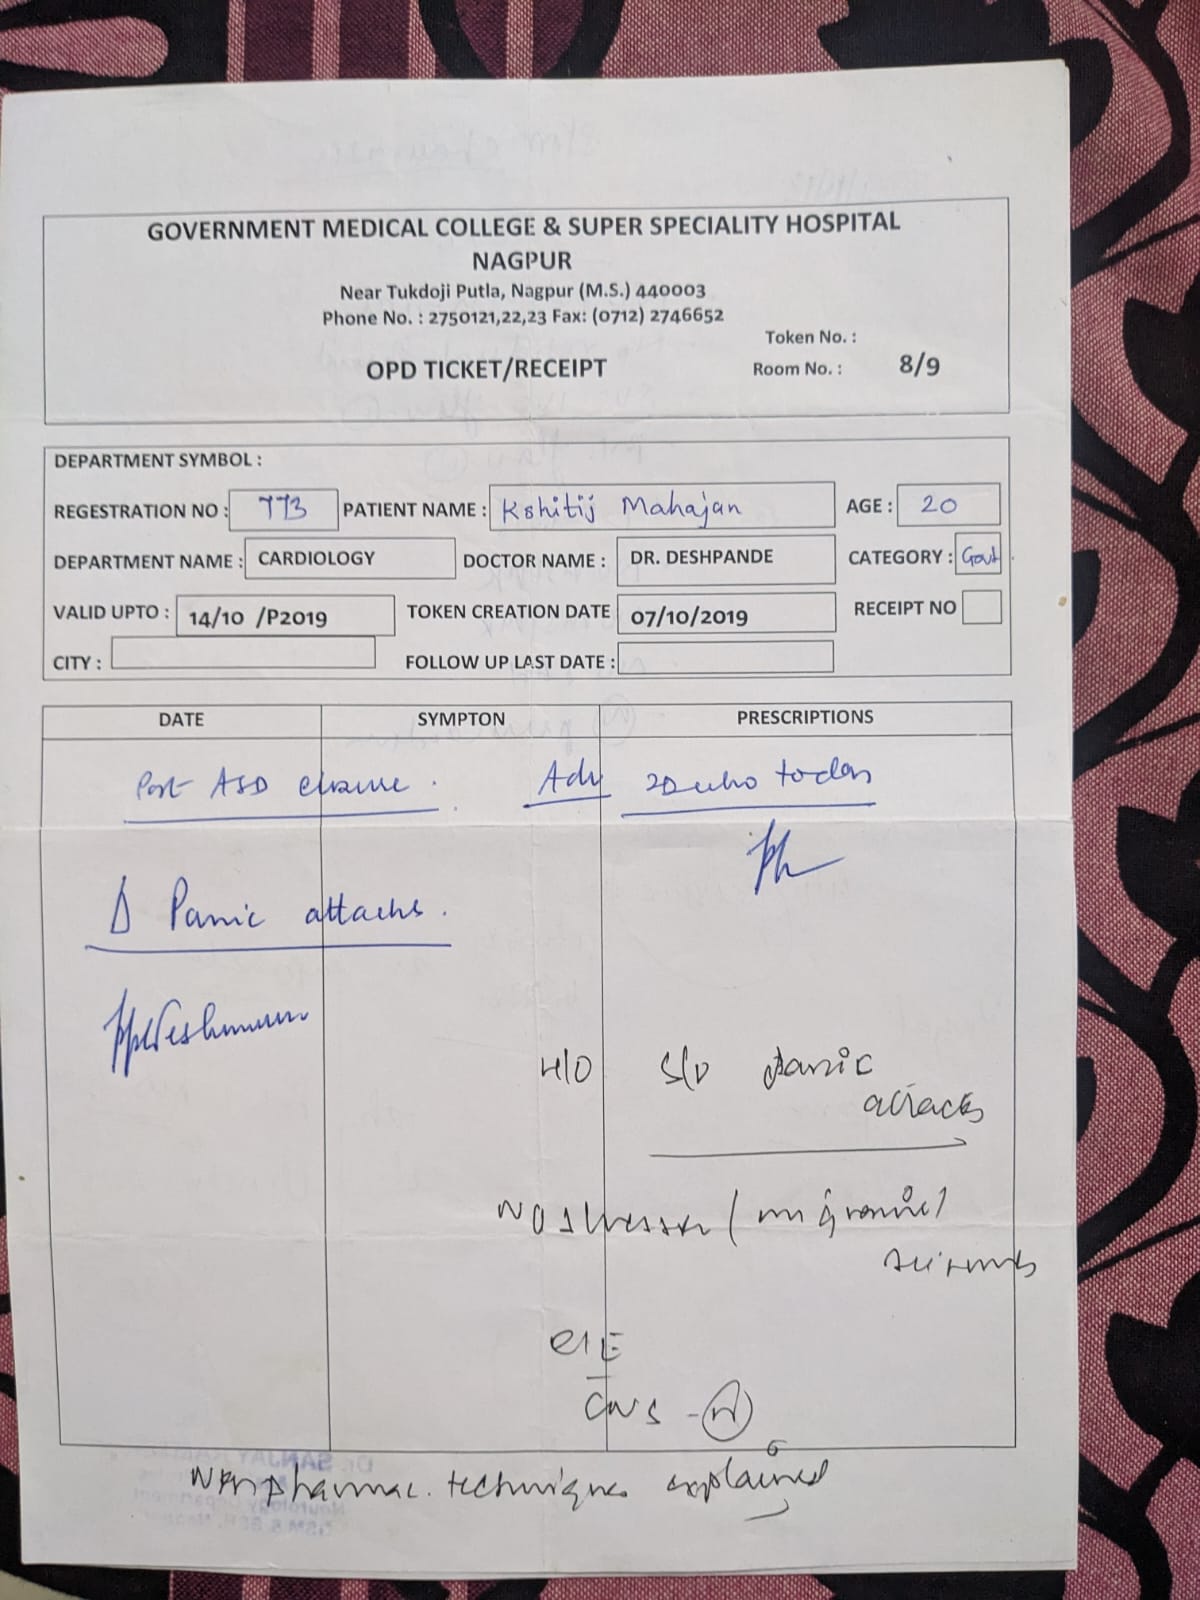 GOVERNMENT MEDICAL COLLEGE & SUPER SPECIALITY HOSPITAL
NAGPUR
Near Tukdoji Putla, Nagpur (M.S.) 440003
Phone No. : 2750121,22,23 Fax: (0712) 2746652
Token No. :
OPD TICKET/RECEIPT
Room No. : 8/9
DEPARTMENT SYMBOL :
REGESTRATION NO : 773 PATIENT NAME : Kshitij Mahajan AGE : 20
DEPARTMENT NAME : CARDIOLOGY DOCTOR NAME : DR. DESHPANDE CATEGORY : Govt
VALID UPTO : 14/10 /P2019 TOKEN CREATION DATE 07/10/2019 RECEIPT NO
CITY : FOLLOW UP LAST DATE :
DATE SYMPTON PRESCRIPTIONS
Post ASD closure . Adv 2D echo today
Δ Panic attacks .
H/O S/O panic
attacks
NO / migraine /
O/E
CNS - N
Nonpharmac. techniques explained